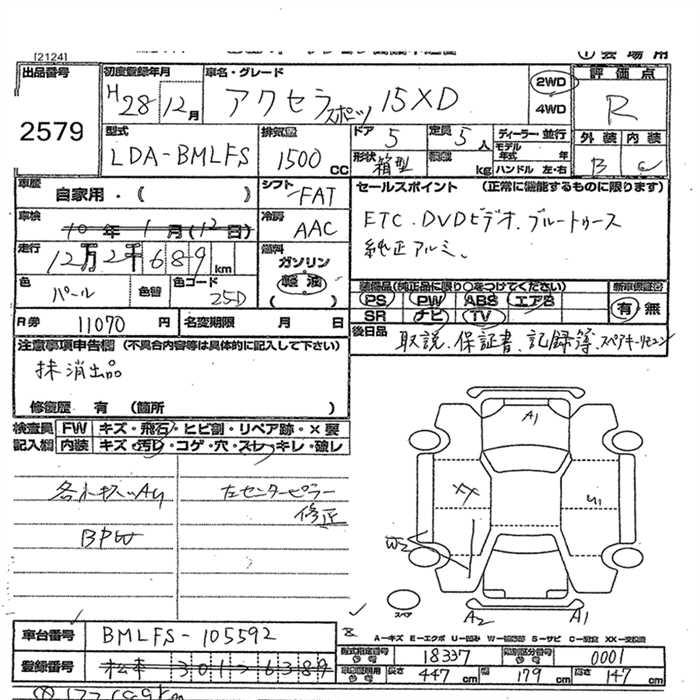 [2124]
① 会場用
出品番号
2579
初度登録年月
H28 12月
車名・グレード
アクセラスポーツ 15XD
2WD
4WD
評価点
R
外装 内装
B C
型式
LDA-BMLFS
排気量
1500 CC
ドア 5
形状 箱型
定員 5 人
積載 kg
ディーラー・並行
モデル年式 年
ハンドル 左・右
車歴
自家用・( )
シフト FAT
冷房 AAC
セールスポイント (正常に機能するものに限ります)
ETC.DVDビデオ.ブルートゥース
純正アルミ.
車検
10年1月(12日)
走行
12万2千689 km
燃料
ガソリン
軽油
( )
色 パール 色替 色コード 25D
装備品(純正品に限り○をつけてください)
PS PW ABS エアB
SR ナビ TV
新車保証書
有・無
R券 11070円
名変期限 月 日
後日品
取説.保証書.記録簿.スペアキーリモコン
注意事項申告欄 (不具合内容等は具体的に記入して下さい)
抹消出品
修復歴 有 (箇所 )
検査員記入欄
FW キズ・飛石・ヒビ割・リペア跡・X要
内装 キズ・汚レ・コゲ・穴・スレ・キレ・破レ
左センターピラー
修正
BPW
A1
XX
U1
W2
スペア
A2
A1
A-キズ E-エクボ U-凹み W-補修跡 S-サビ C-腐食 XX-交換済
車台番号
BMLFS-105592
登録番号
松本 301 6389
型式指定番号
18337
類別区分番号
0001
長さ 447 cm
幅 179 cm
高さ 147 cm